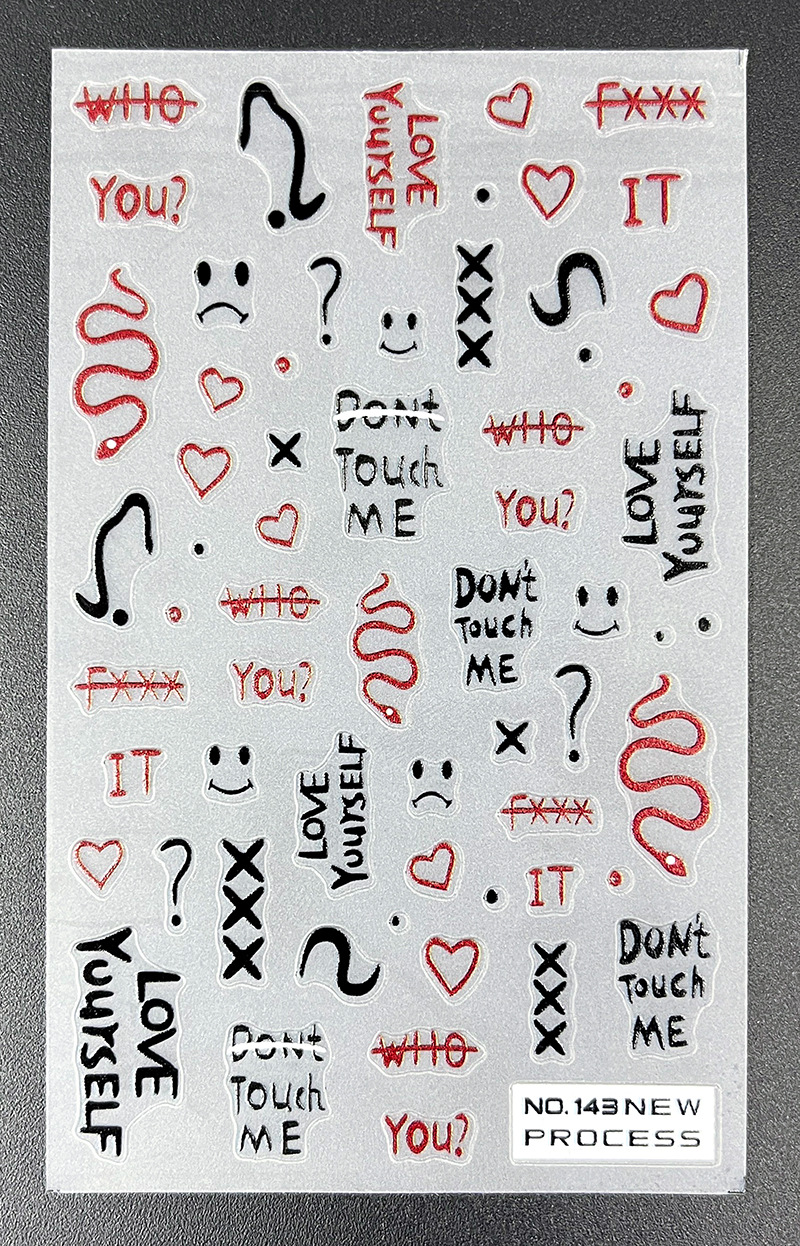 WHO
?
LOVE
YourSELF
FXXX
YOU?
IT
?
XXX
DONt
Touch
ME
X
WHO
YOU?
LOVE
YourSELF
?
WHO
YOU?
DON't
Touch
ME
FXXX
IT
?
X
LOVE
YourSELF
FXXX
IT
?
XXX
LOVE
YourSELF
DONt
Touch
ME
WHO
YOU?
XXX
DON't
Touch
ME
NO.143 NEW
PROCESS